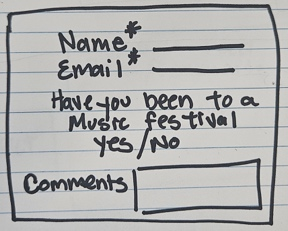 Name*
Email*
Have you been to a
Music festival
Yes/No
Comments